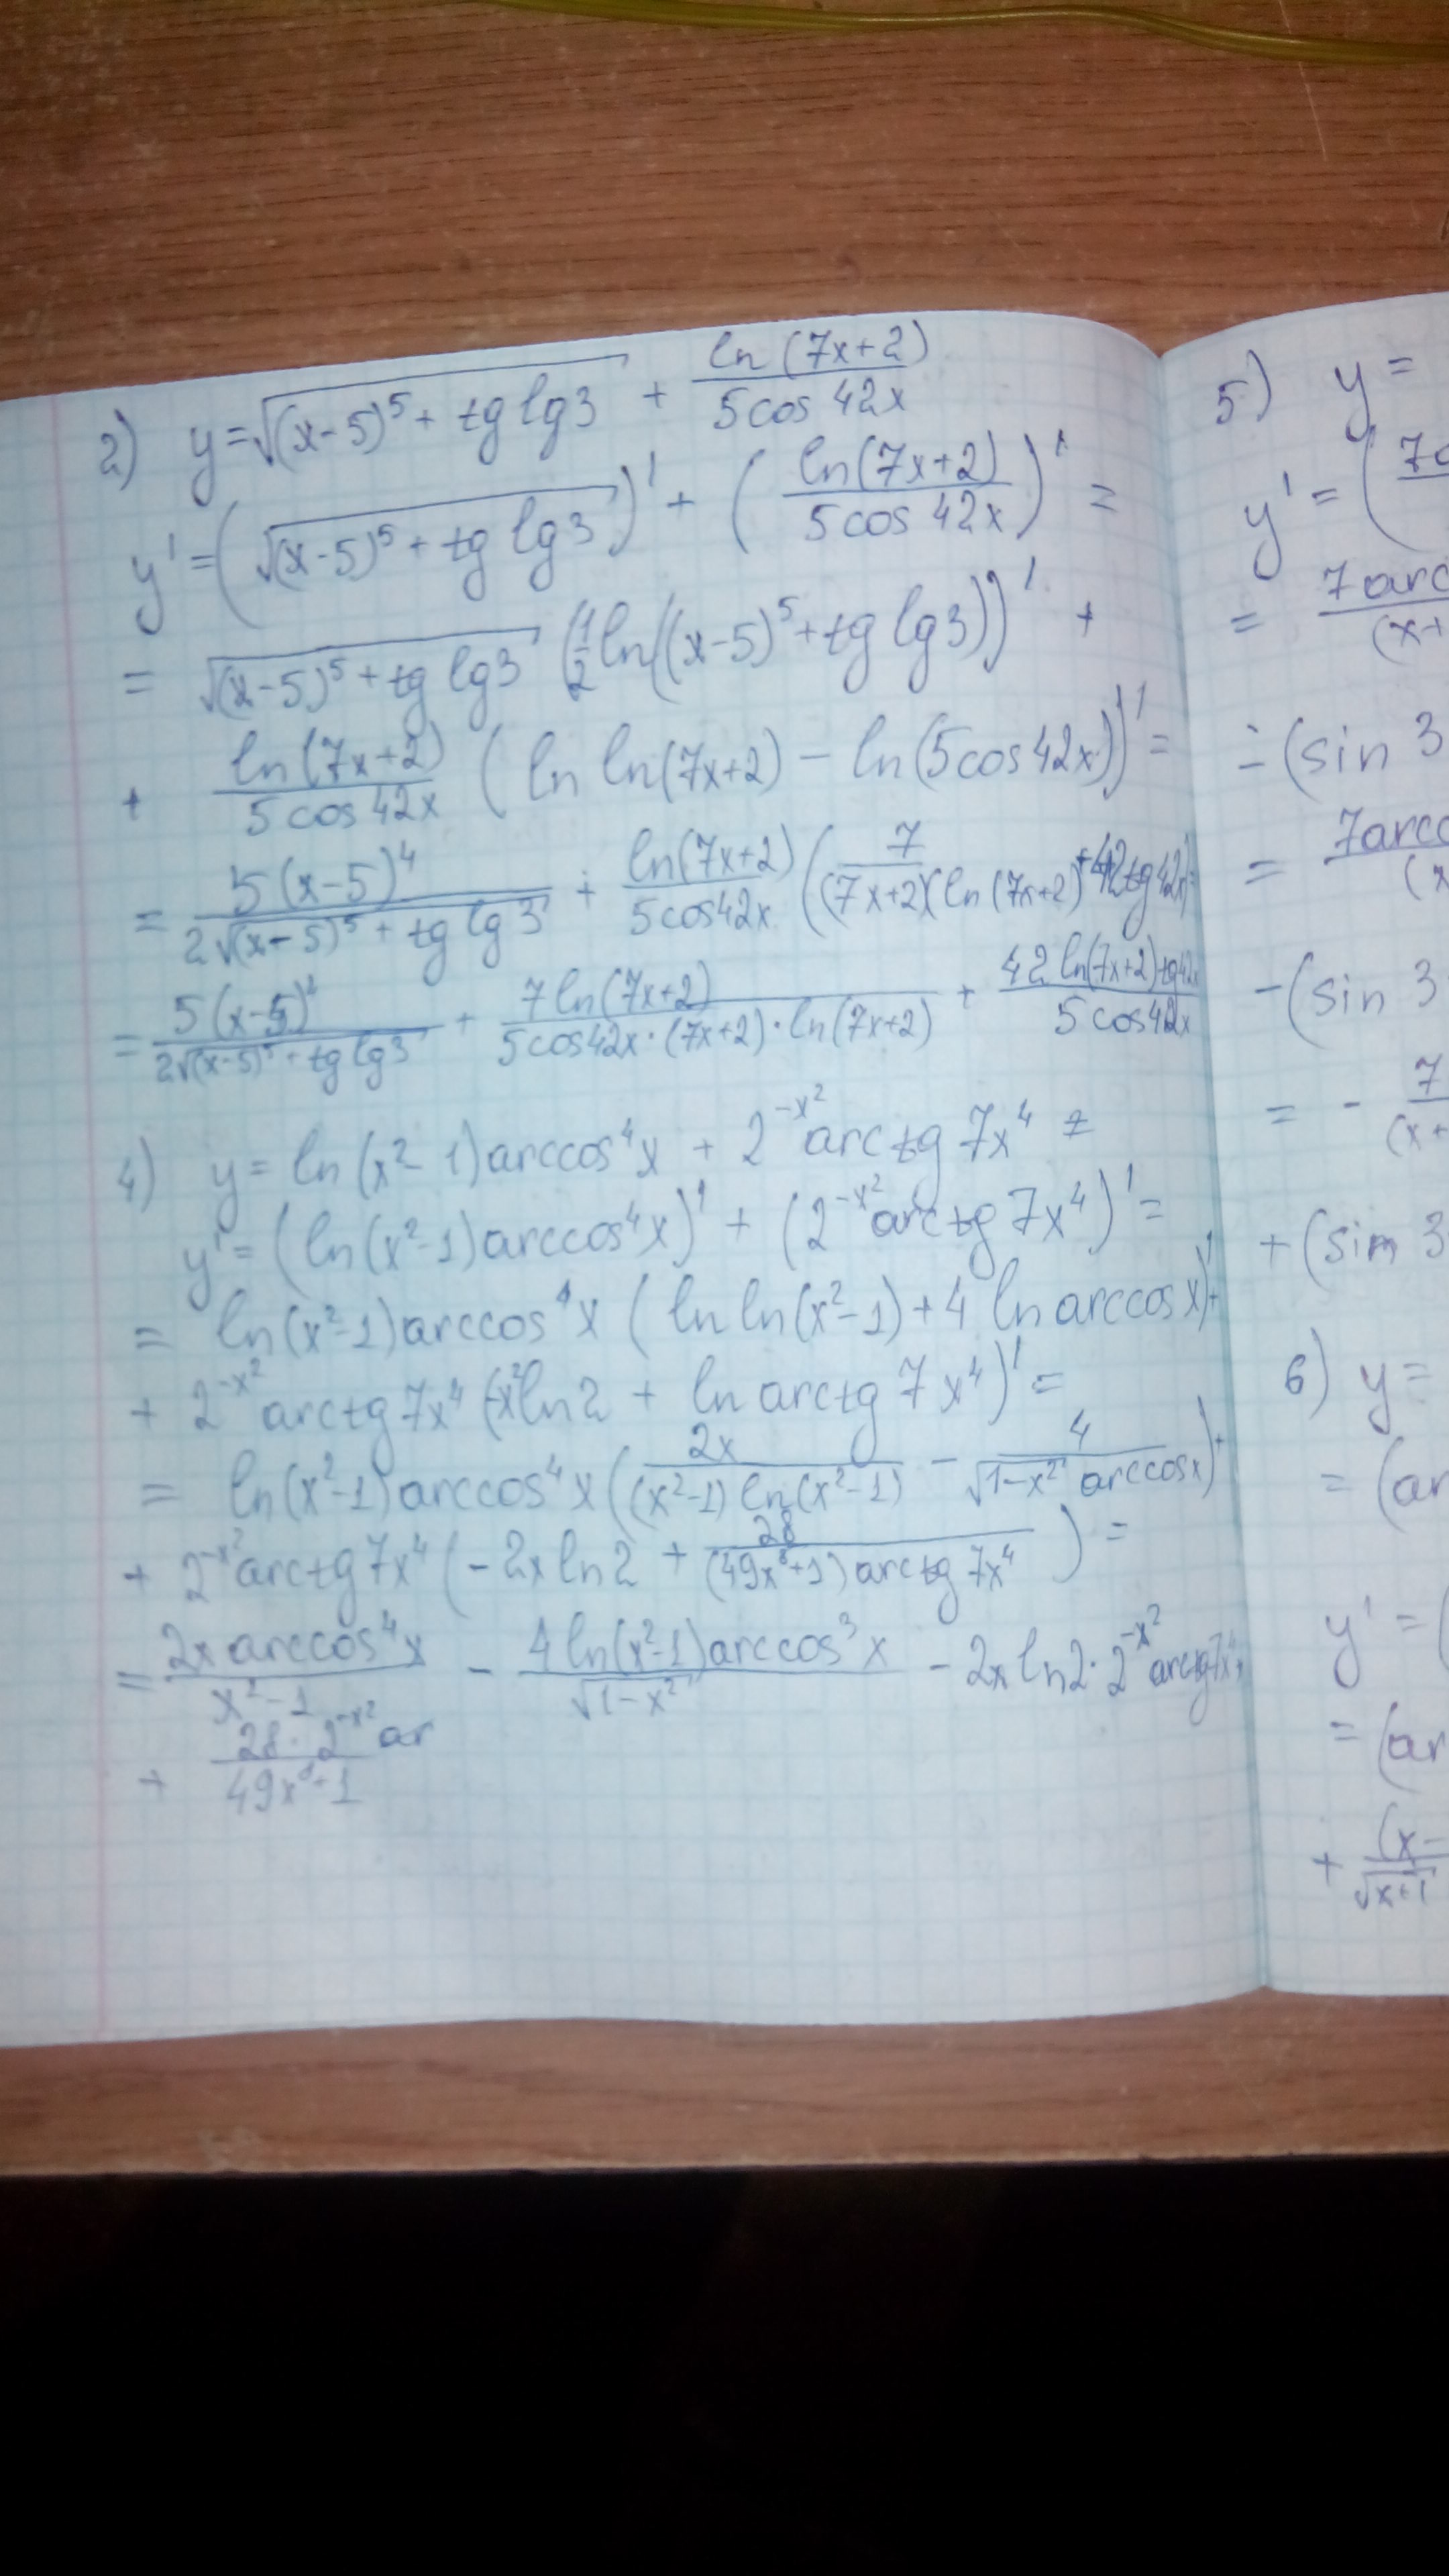 2) y = √((x-5)⁵ + tg lg3) + ln(7x+2) / (5cos 42x)
y' = (√((x-5)⁵ + tg lg3))' + (ln(7x+2) / (5cos 42x))' =
= √((x-5)⁵ + tg lg3) (1/2 ln((x-5)⁵ + tg lg3))' +
+ ln(7x+2) / (5cos 42x) (ln ln(7x+2) - ln(5cos42x))' =
= 5(x-5)⁴ / (2√((x-5)⁵ + tg lg3)) + ln(7x+2) / (5cos42x) (7 / ((7x+2)(ln(7x+2)) + 42tg42x) =
= 5(x-5) / (2√((x-5) + tg lg3)) + 7ln(7x+2) / (5cos42x·(7x+2)·ln(7x+2)) + 42 ln(7x+2)tg42x / (5cos42x)
4) y = ln(x²-1)arccos⁴x + 2^(-x²) arctg 7x⁴ =
y' = (ln(x²-1)arccos⁴x)' + (2^(-x²) arctg 7x⁴)' =
= ln(x²-1)arccos⁴x (ln ln(x²-1) + 4 ln arccos x)' +
+ 2^(-x²) arctg 7x⁴ (-x²ln2 + ln arctg 7x⁴)' =
= ln(x²-1)arccos⁴x (2x / ((x²-1) ln(x²-1)) - 4 / (√(1-x²) arccosx)) +
+ 2^(-x²) arctg 7x⁴ (-2x ln2 + 28 / ((49x⁸+1) arctg 7x⁴)) =
= 2x arccos⁴x / (x²-1) - 4ln(x²-1)arccos³x / √(1-x²) - 2x ln2 · 2^(-x²) arctg7x⁴ +
+ 28·2^(-x²) ar / (49x⁸+1)
5) y =
y' = (7a
= 7arc / (x+
= (sin 3
= 7arcc / (x
- (sin 3
= - 7 / (x+
+ (sin 3
6) y =
= (ar
y' = (
= (ar
+ (x- / √(x+1